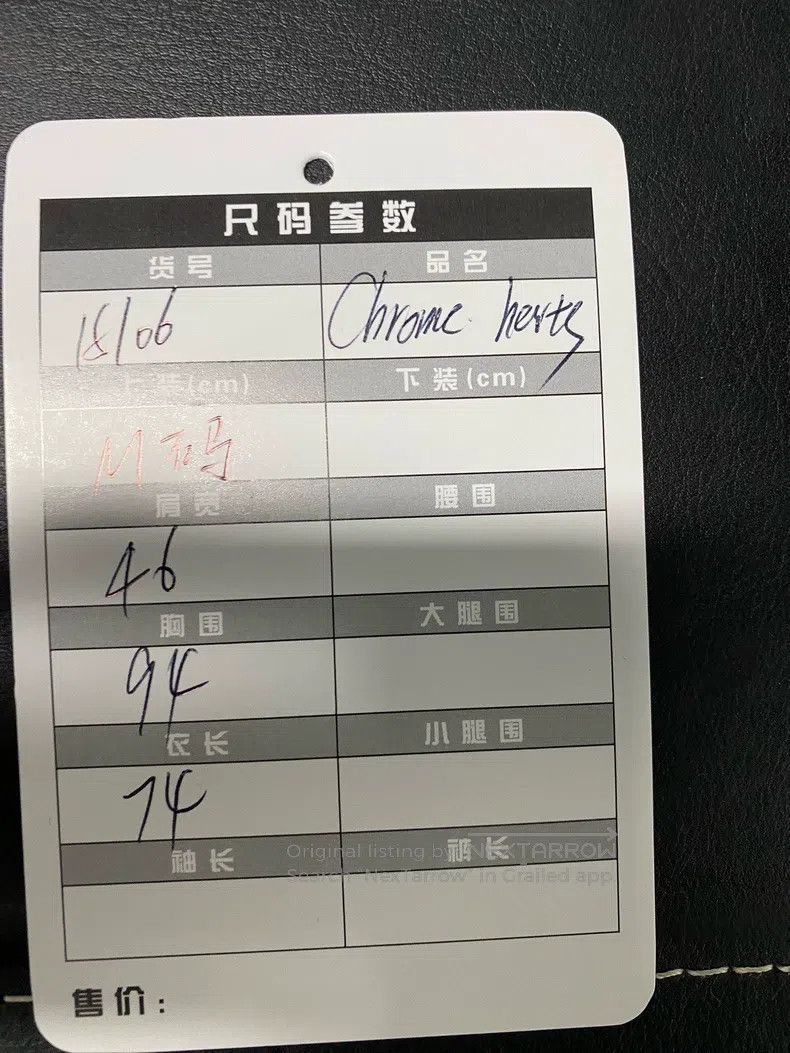 尺码参数
货号 品名
18106 Chrome herts
上装(cm) 下装(cm)
M码
肩宽 腰围
46
胸围 大腿围
94
衣长 小腿围
74
袖长 裤长
Original listing by NEXTARROW
Search "NexTarrow" in Grailed app.
售价: